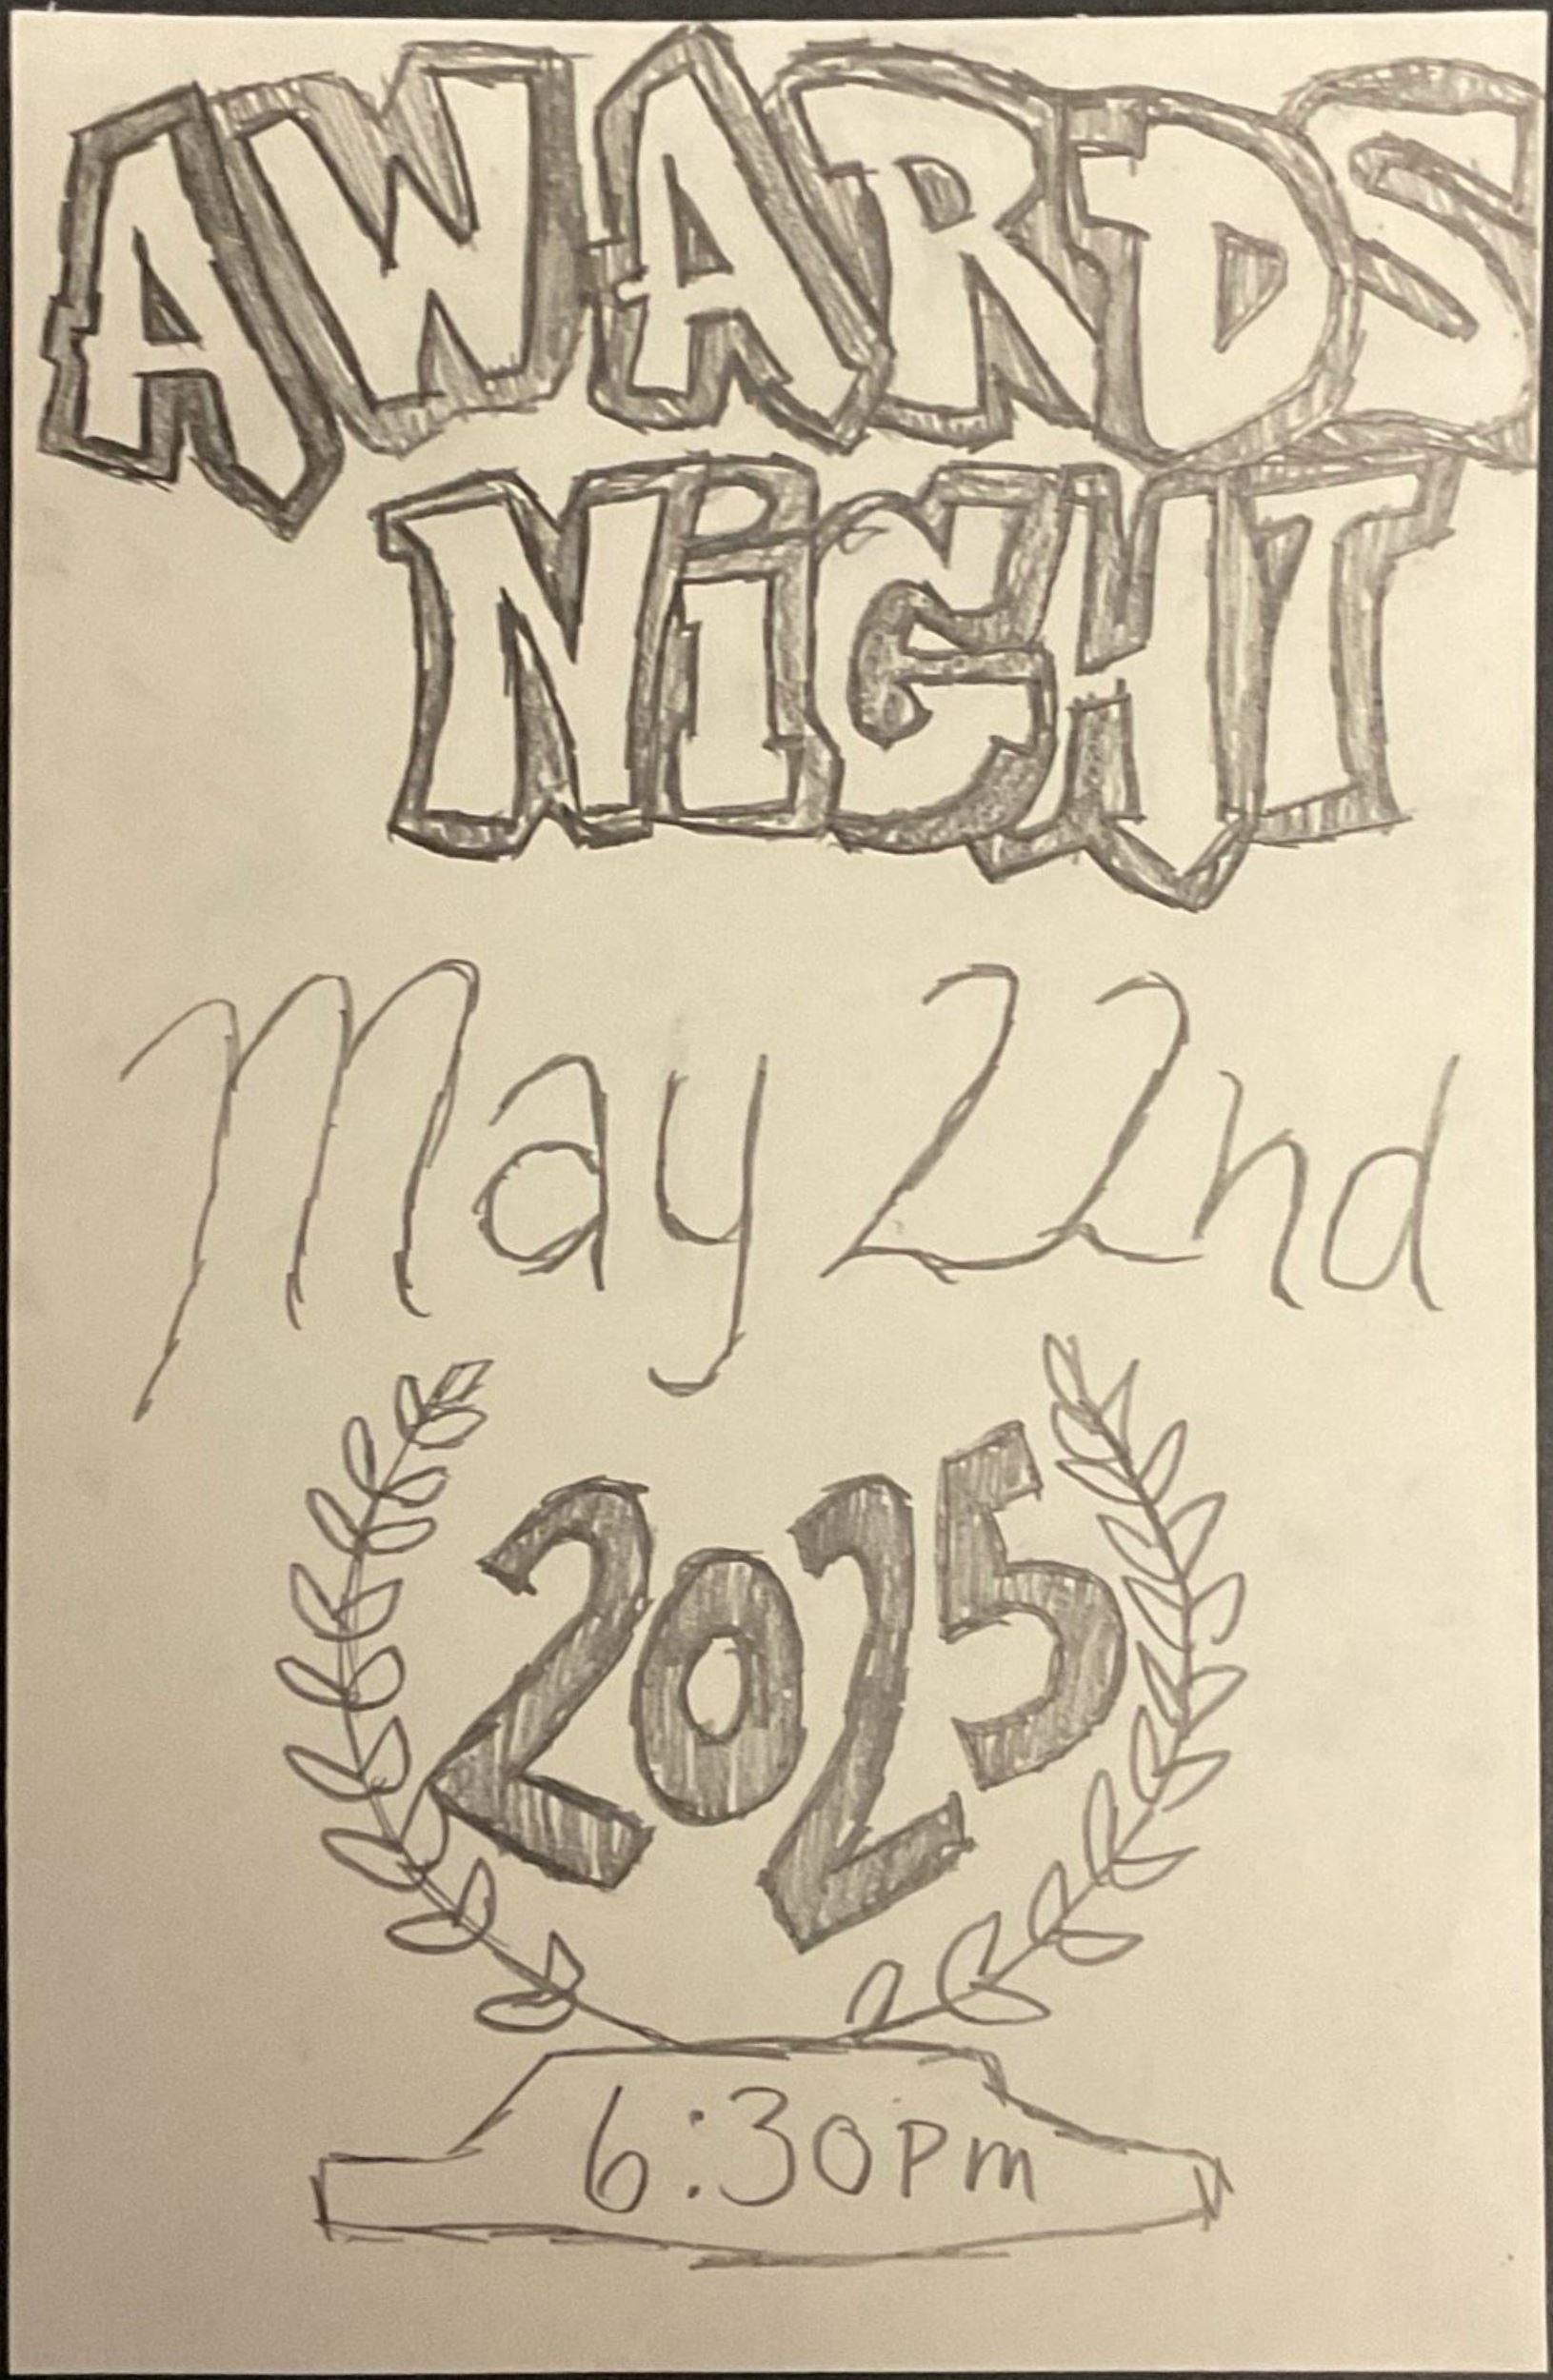 AWARDS
NiGHT
May 22nd
2025
6:30pm